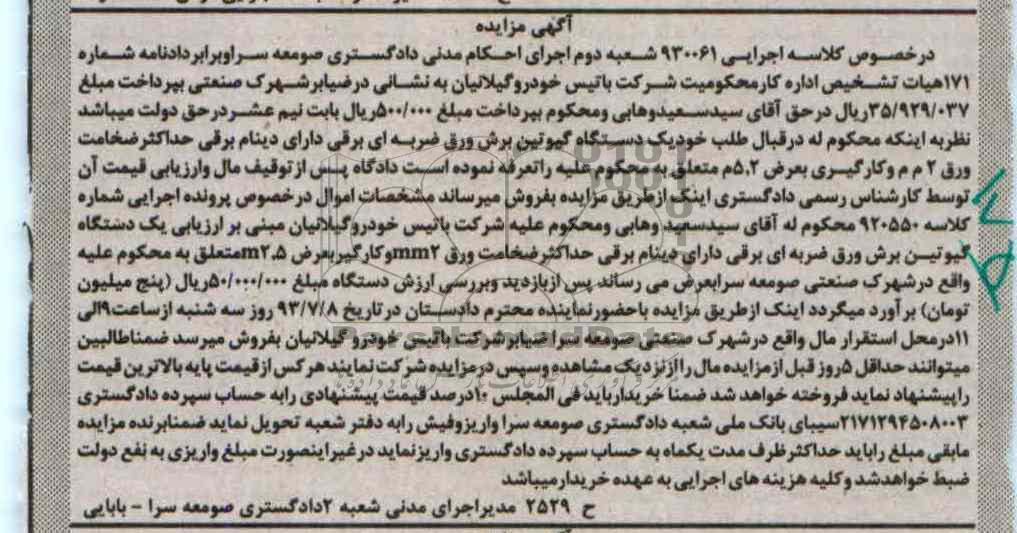 آگهی مزایده
درخصوص کلاسه اجرایی ۹۳۰۰۶۱ شعبه دوم اجرای احکام مدنی دادگستری صومعه سراوبرابر دادنامه شماره
۱۷۱هیات تشخیص اداره کار محکومیت شرکت باتیس خودروگیلانیان به نشانی درضیابرشهرک صنعتی بپرداخت مبلغ
۳۵/۹۲۹/۰۳۷ریال درحق آقای سیدسعیدوهابی ومحکوم بپرداخت مبلغ ۵۰۰/۰۰۰ریال بابت نیم عشردرحق دولت میباشد
نظربه اینکه محکوم له درقبال طلب خودیک دستگاه گیوتین برش ورق ضربه ای برقی دارای دینام برقی حداکثرضخامت
ورق ۲ م م وکارگیری بعرض ۵,۲م متعلق به محکوم علیه راتعرفه نموده است دادگاه پس ازتوقیف مال وارزیابی قیمت آن
توسط کارشناس رسمی دادگستری اینک ازطریق مزایده بفروش میرساند مشخصات اموال درخصوص پرونده اجرایی شماره
کلاسه ۹۲۰۵۵۰ محکوم له آقای سیدسعید وهابی ومحکوم علیه شرکت باتیس خودروگیلانیان مبنی بر ارزیابی یک دستگاه
گیوتین برش ورق ضربه ای برقی دارای دینام برقی حداکثرضخامت ورق mm۲وکارگیربعرض m۲.۵متعلق به محکوم علیه
واقع درشهرک صنعتی صومعه سرابعرض می رساند پس ازبازدید وبررسی ارزش دستگاه مبلغ ۵۰/۰۰۰/۰۰۰ریال (پنج میلیون
تومان) برآورد میگردد اینک ازطریق مزایده باحضورنماینده محترم دادستان درتاریخ ۹۳/۷/۸ روز سه شنبه ازساعت۹الی
۱۱درمحل استقرار مال واقع درشهرک صنعتی صومعه سرا ضیابرشرکت باتیس خودرو گیلانیان بفروش میرسد ضمناطالبین
میتوانند حداقل ۵روز قبل ازمزایده مال راازنزدیک مشاهده وسپس درمزایده شرکت نمایند هرکس ازقیمت پایه بالاترین قیمت
راپیشنهاد نماید فروخته خواهد شد ضمنا خریدارباید فی المجلس ۱۰درصد قیمت پیشنهادی رابه حساب سپرده دادگستری
۲۱۷۱۲۹۴۵۰۸۰۰۳سیبای بانک ملی شعبه دادگستری صومعه سرا واریزوفیش رابه دفتر شعبه تحویل نماید ضمنابرنده مزایده
مابقی مبلغ راباید حداکثرظرف مدت یکماه به حساب سپرده دادگستری واریزنماید درغیراینصورت مبلغ واریزی به نفع دولت
ضبط خواهدشد وکلیه هزینه های اجرایی به عهده خریدارمیباشد
ح ۲۵۲۹ مدیراجرای مدنی شعبه ۲دادگستری صومعه سرا - بابایی